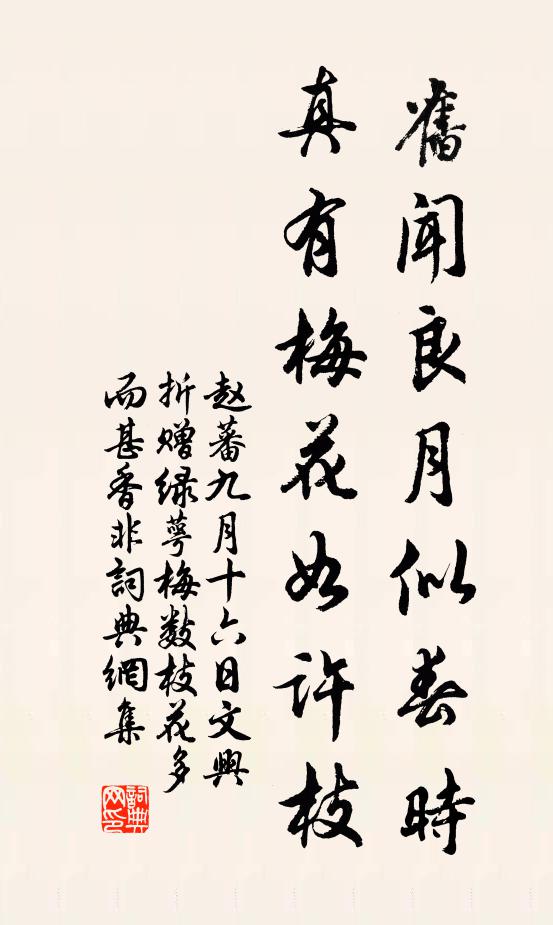 舊聞良月似春時
真有梅花如許枝
赵蕃九月十六日文興
折赠绿萼梅数枝花多
而甚香非詞典網集
詞典
网印